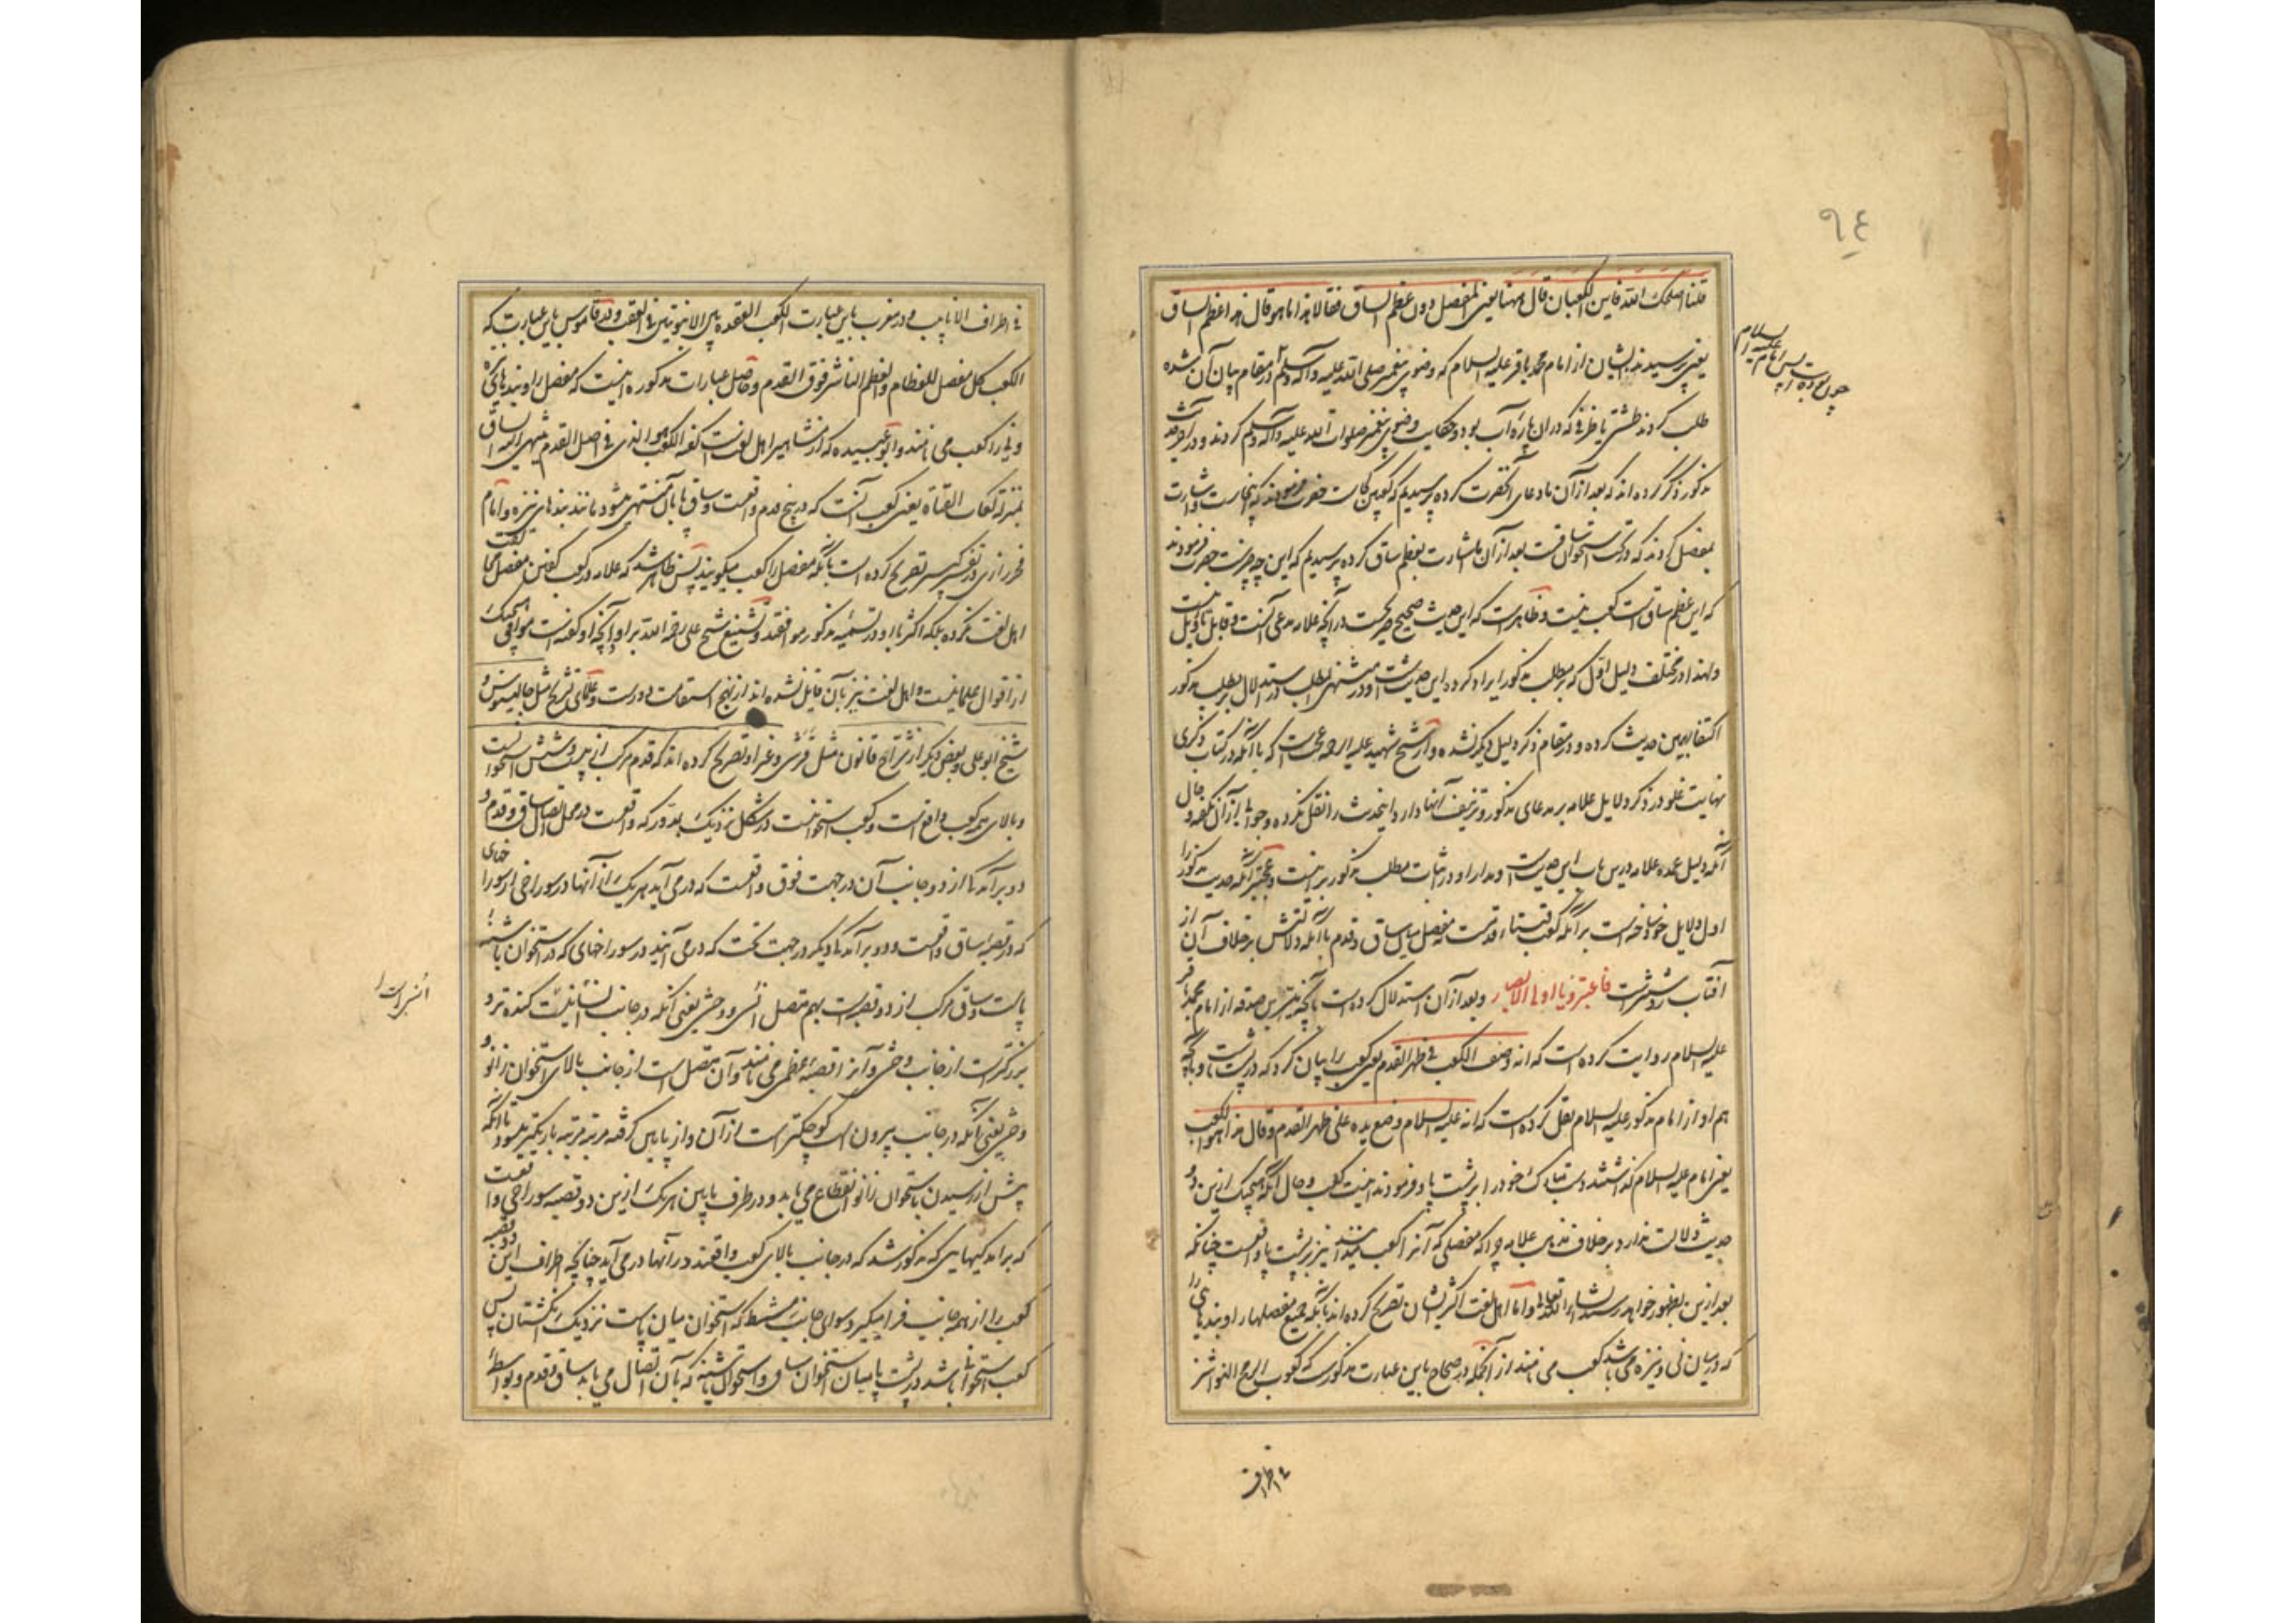 ٩٤
قلنا اصلحک الله فاین الکعبان قال ههنا یعنی المفصل دون عظم الساق فقالا هذا ما هو قال هذا عظم الساق
یعنی پرسیدند ایشان از امام محمد باقر علیه السلام که وضوی پیغمبر صلی الله علیه وآله وسلم در مقام بیان آن شده
طلب کردند طشتی یا ظرفی که در ان پاره آب بود و حکایت وضوی پیغمبر صلوات الله علیه وآله وسلم کردند و در آخر حدیث
مذکور ذکر کرده اند که بعد از آن ما دعای آنحضرت کرده پرسیدیم که کعبین کجاست حضرت فرمودند که اینجاست و اشارت
بمفصل کردند که در تحت استخوان ساقست بعد از آن ما اشارت بعظم ساق کرده پرسیدیم که این چه چیزست حضرت فرمودند
که این عظم ساق است کعب نیست و ظاهرست که این حدیث صحیح صریحست در آنچه علامه مدعی آنست و قابل تاویل نیست
ولهذا در مختلف دلیل اول که بر مطلب مذکور ایراد کرده این حدیث است و در منتهی المطلب در استدلال بر مطلب مذکور
اکتفا بهمین حدیث کرده و در مقام ذکر دلیل دیگر نشده و از شیخ شهید علیه الرحمه عجب است که با آنکه در کتاب ذکری
نهایت غلو در ذکر دلایل علامه بر مدعای مذکور و تزییف آنها دارد اینحدیث را نقل نکرده و جوابی از آن نگفته و حال
آنکه دلیل عمده علامه درین باب این حدیث است و مدار او در اثبات مطلب مذکور بر اینست و عجبتر آنکه حدیث مذکور را
اول دلایل خود ساخته است بر آنکه کعب قبتا قدمست نه مفصل میان ساق و قدم با آنکه دلالتش بر خلاف آن از
آفتاب روشنترست فاعتبروا یا اولی الابصار و بعد از آن استدلال کرده است بآنچه میسر بن صدقه از امام محمد باقر
علیه السلام روایت کرده است که انه وصف الکعب فی ظهر القدم یعنی کعب را بیان کرد که در پشت پاست و بآنچه
هم او از امام مذکور علیه السلام نقل کرده است که انه علیه السلام وضع یده علی ظهر القدم وقال هذا هو الکعب
یعنی امام علیه السلام گذاشتند دست مبارک خود را بر پشت پا و فرمودند اینست کعب و حال آنکه هیچیک ازین دو
حدیث دلالت ندارد بر خلاف مذهب علامه چرا که مفصلی که آنرا کعب میداند نیز بر پشت پا واقعست چنانکه
بعد ازین بظهور خواهد رسید انشاء الله تعالی و اما اهل لغت اکثر ایشان تصریح کرده اند بآنکه جمیع مفصلها را و بندهای را
که در میان نی و نیزه می باشد کعب می نامند از آنجمله در صحاح باین عبارت مذکورست که کعوب الرمح النواشز
فی اطراف الانابیب و در مغرب باین عبارت الکعب العقدة بین الانبوبتین فی القصب و در قاموس باین عبارت که
الکعب کل مفصل للعظام والعظم الناشز فوق القدم و حاصل عبارات مذکوره اینست که مفصل را و بندهای نیزه
و نی را کعب می نامند و ابو عبیده که از مشاهیر اهل لغت است گفته الکعب هو الذی فی اصل القدم ینتهی الیه الساق
بمنزلة کعاب القناة یعنی کعب آنست که در بیخ قدم واقعست و ساق پا بآن منتهی میشود مانند بندهای نیزه و امام
فخر رازی در تفسیر کبیر تصریح کرده است بآنکه مفصل را کعب میگویند پس ظاهر شد که علامه در کعب گفتن مفصل مخالفت
اهل لغت نکرده بلکه اکثر با او در تسمیه مذکور موافقند و تشنیع شیخ علی رحمه الله بر او بآنچه او گفته است موافق هیچیک
از اقوال علما نیست و اهل لغت نیز بآن قایل نشده اند از نهج استقامت دورست و علمای تشریح مثل جالینوس و
شیخ ابو علی و بعضی دیگر از شراح قانون مثل قرشی و غیر او تصریح کرده اند که قدم مرکب از بیست و شش استخوانست
و بالای همه کعب واقع است و کعب استخوانیست در شکل نزدیک بمدور که واقعست در محل اتصال ساق و قدم و
دو برآمدگی از دو جانب آن در جهت فوق واقعست که در می آید هر یک از آنها در سوراخی از سوراخهای
که در قصبه ساق واقعست و دو برآمدگی دیگر در جهت تحت که در می آیند در سوراخهای که در استخوان پاشنه
پاست و ساق مرکب از دو قصبه است بهم متصل انسی و وحشی یعنی آنکه در جانب انسانیت کنده تر و
بزرگترست از جانب وحشی و آنرا قصبه عظمی می نامند و آن متصل است از جانب بالا باستخوان زانو و
وحشی یعنی آنکه در جانب بیرون است کوچکترست از آن و از پایین گرفته مرتبه مرتبه باریکتر میشود تا آنکه
پیش از رسیدن باستخوان زانو انقطاع می یابد و در طرف پایین هر یک ازین دو قصبه سوراخی واقعست
که برآمدگیهایی که مذکور شد که در جانب بالای کعب واقعند در آنها در می آید چنانچه اطراف این دو قصبه
کعب را از همه جانب فرا میگیرد سوای جانب مشط که استخوان میان پاست نزدیک انگشتان پس
کعب استخوانی باشد در پشت پا میان استخوان ساق و استخوان پاشنه که بآن اتصال می یابد ساق و قدم و بواسطه